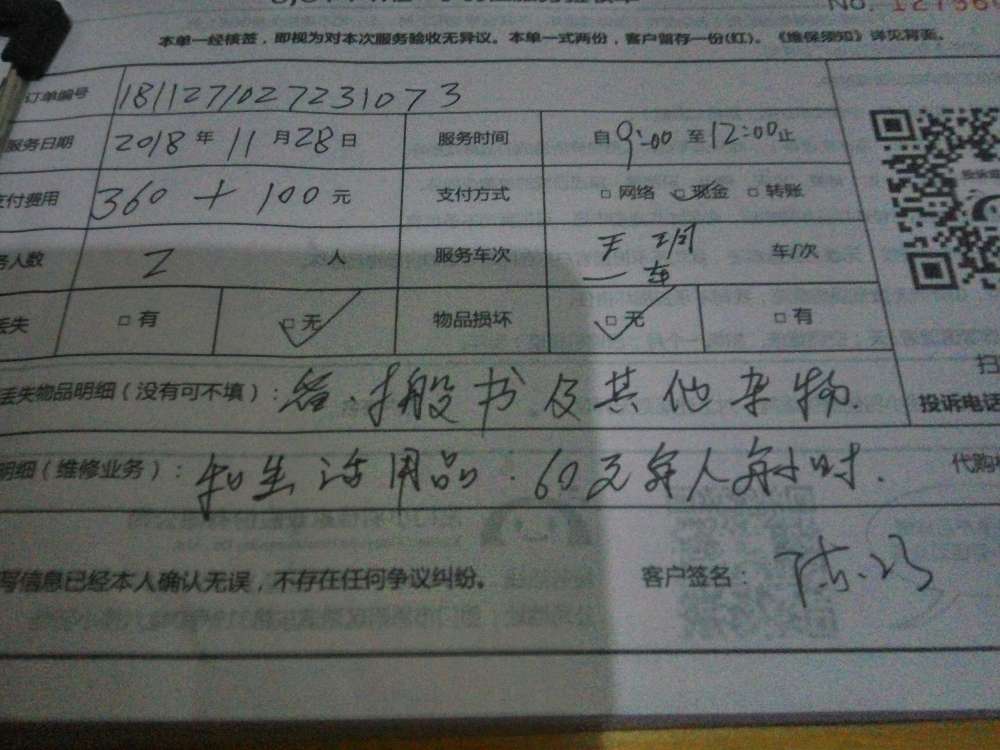 No.
本单一经核签，即视为对本次服务验收无异议。本单一式两份，客户留存一份(红)。《维保须知》详见背面。
订单编号 181127102723107 3
服务日期 2018 年 11 月 28 日 服务时间 自 9:00 至 12:00 止
支付费用 360 + 100 元 支付方式 □ 网络 □ 现金 □ 转账
务人数 2 人 服务车次 一车 车/次
丢失 □ 有 □ 无 物品损坏 □ 无 □ 有
扫
丢失物品明细（没有可不填）： 搬书及其他杂物.
投诉电话
明细（维修业务）： 和生活用品. 60元每人每小时.
代购
写信息已经本人确认无误，不存在任何争议纠纷。 客户签名：